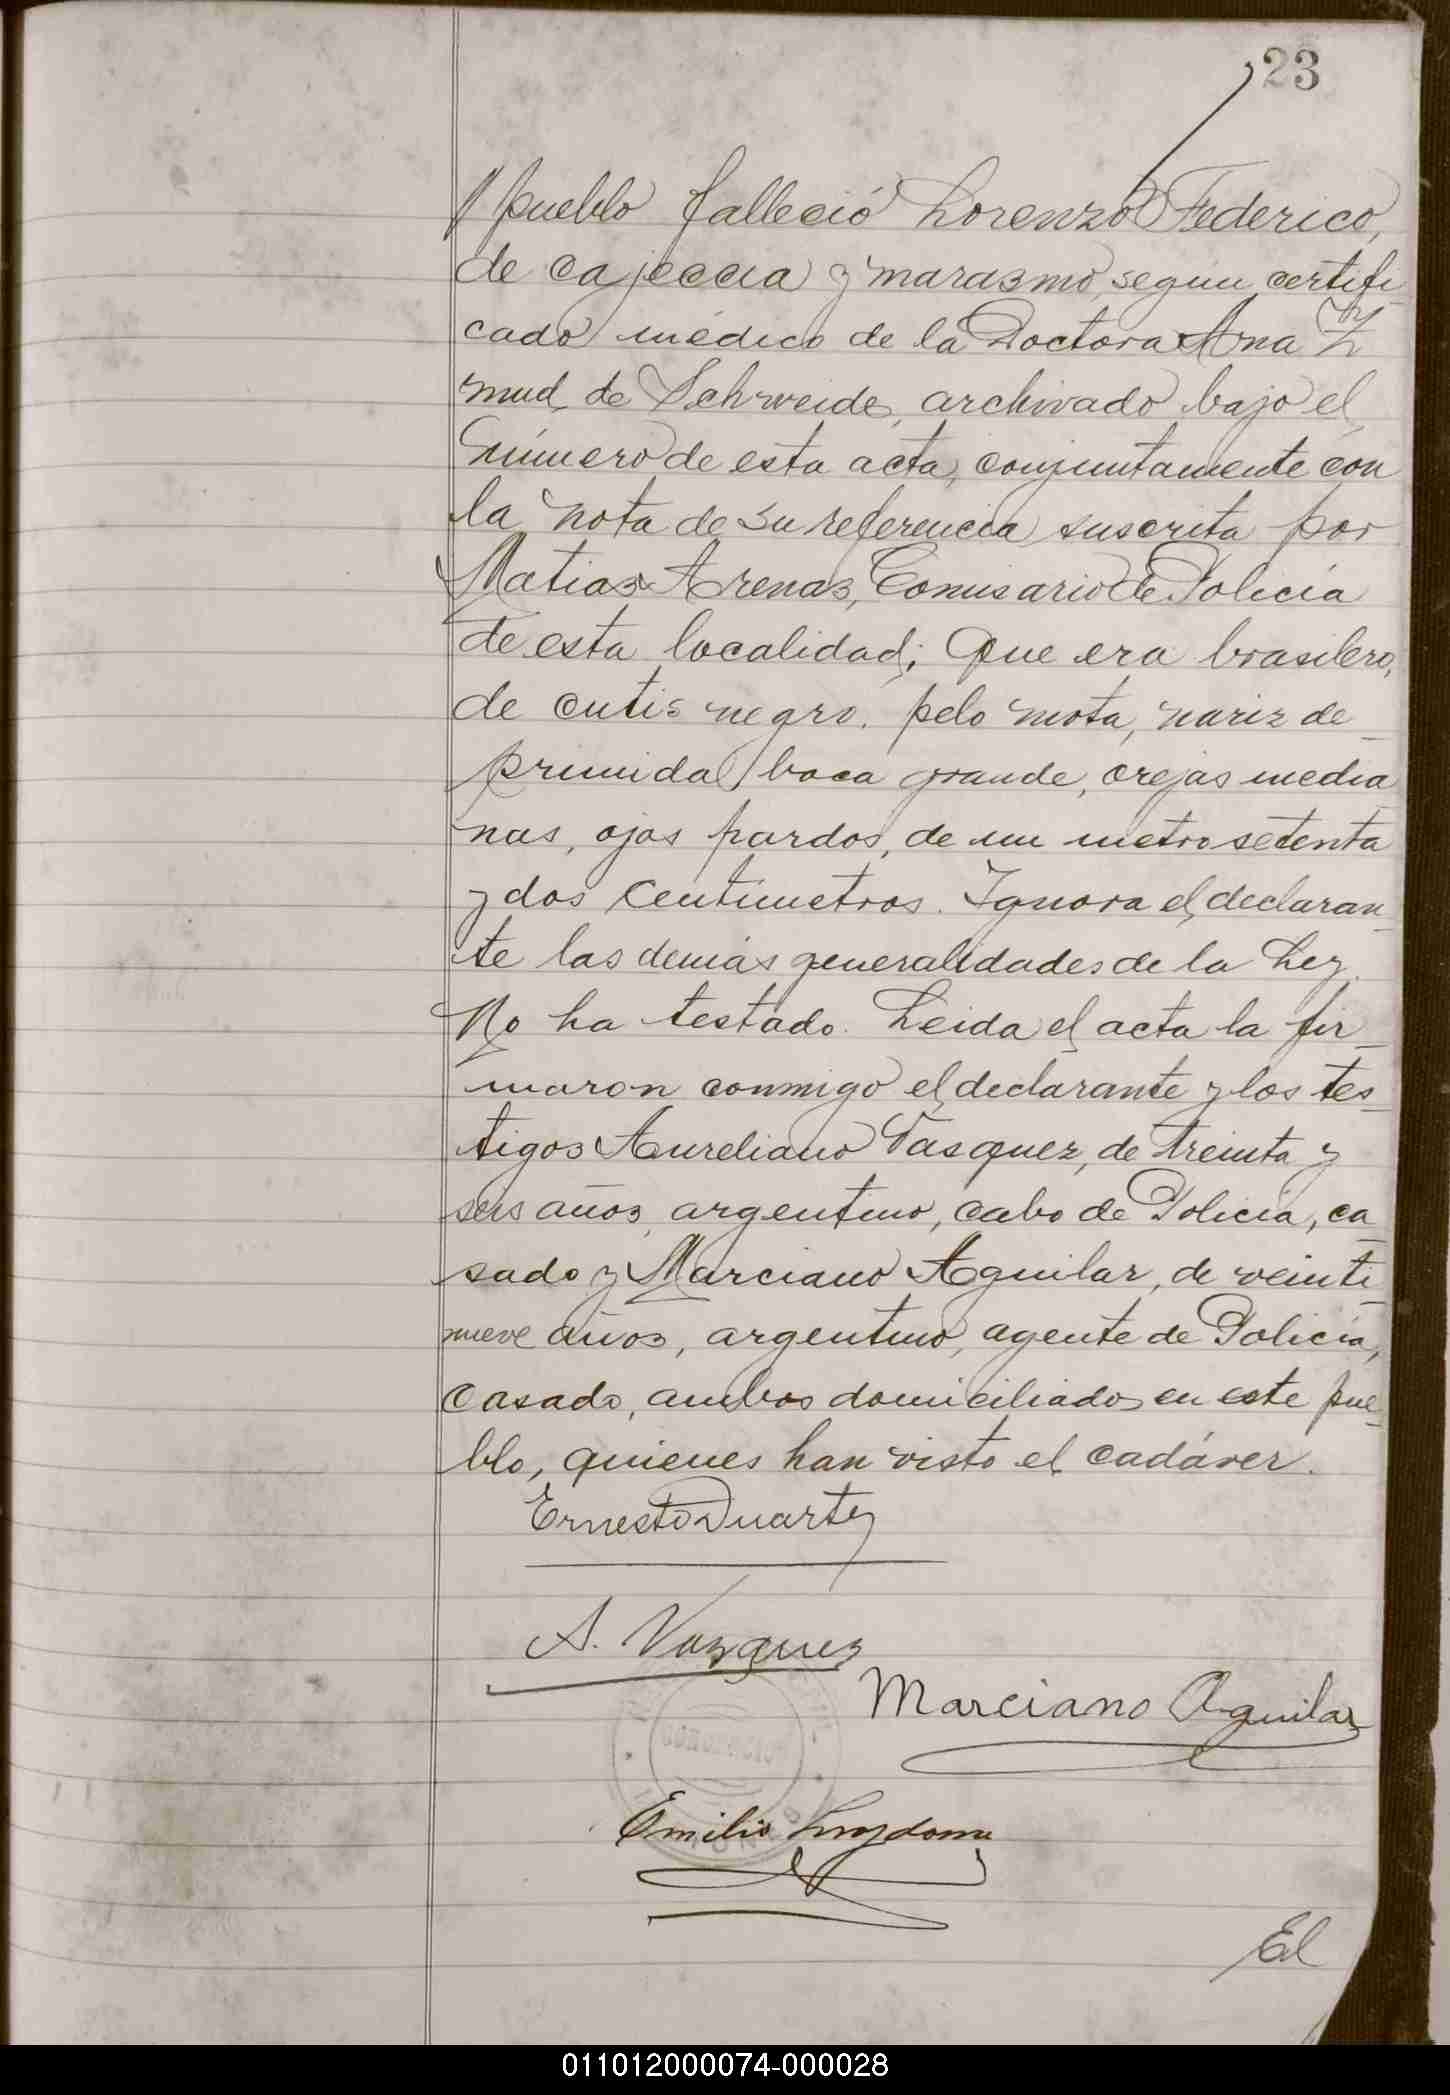 23
pueblo falleció Lorenzo Federico,
de cajeccia y marasmo, segun certifi
cado médico de la Doctora Ana Z
mud de Schweide, archivado bajo el
número de esta acta, conjuntamente con
la nota de su referencia suscrita por
Matias Arenas, Comisario de Policía
de esta localidad; Que era brasilero,
de cutis negro, pelo mota, nariz de_
primida boca grande, orejas media
nas, ojos pardos, de un metro setenta
y dos centímetros. Ignora el declaran_
te las demás generalidades de la Ley.
No ha testado. Leida el acta la fir_
maron conmigo el declarante y los tes_
tigos Aureliano Vasquez, de treinta y
seis años, argentino, cabo de Policía, ca_
sado y Marciano Aguilar, de veinti_
nueve años, argentino, agente de Policía,
casado, ambos domiciliados en este pue_
blo, quienes han visto el cadáver.
Ernesto Duarte
A. Vazquez
Marciano Aguilar
Emilio
El
011012000074-000028